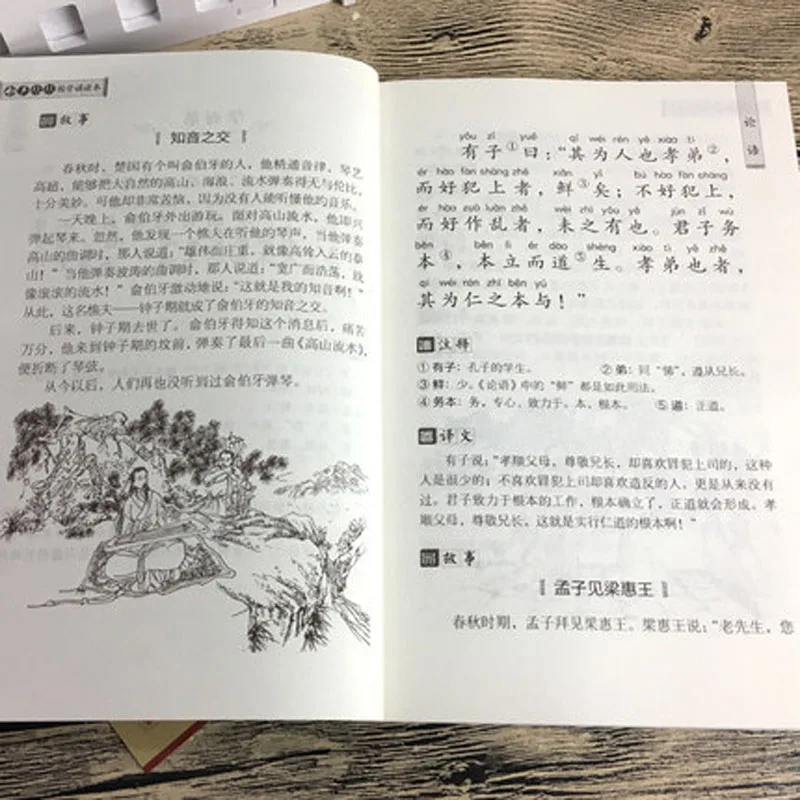 国学诵读本
故事
知音之交
春秋时，楚国有个叫俞伯牙的人，他精通音律，琴艺
高超，能够把大自然的高山、海浪、流水弹奏得无与伦比，
十分美妙。可他却非常苦恼，因为没有人能听懂他的音乐。
一天晚上，俞伯牙外出游玩，面对高山流水，他即兴
弹起琴来。忽然，他发现一个樵夫在听他的琴声，当他弹奏
高山的曲调时，那人说道：“雄伟而庄重，就像高耸入云的泰
山！”当他弹奏波涛的曲调时，那人说道：“宽广而浩荡，就
像滚滚的流水！”俞伯牙激动地说：“这就是我的知音啊！”
从此，这名樵夫——钟子期就成了俞伯牙的知音之交。
后来，钟子期去世了。俞伯牙得知这个消息后，痛苦
万分，他来到钟子期的坟前，弹奏了最后一曲《高山流水》，
便折断了琴弦。
从今以后，人们再也没听到过俞伯牙弹琴。
论语
yǒu zǐ yuē qí wéi rén yě xiào tì
有子①曰：“其为人也孝弟②，
ér hào fàn shàng zhě xiǎn yǐ bú hào fàn shàng
而好犯上者，鲜③矣；不好犯上，
ér hào zuò luàn zhě wèi zhī yǒu yě jūn zǐ wù
而好作乱者，未之有也。君子务
běn běn lì ér dào shēng xiào tì yě zhě
本④，本立而道⑤生。孝弟也者，
qí wéi rén zhī běn yú
其为仁之本与！”
注释
①有子：孔子的学生。 ②弟：同“悌”，遵从兄长。
③鲜：少。《论语》中的“鲜”都是如此用法。
④务本：务，专心、致力于。本，根本。 ⑤道：正道。
译文
有子说：“孝顺父母，尊敬兄长，却喜欢冒犯上司的，这种
人是很少的；不喜欢冒犯上司却喜欢造反的人，更是从来没有
过。君子致力于根本的工作，根本确立了，正道就会形成。孝
顺父母，尊敬兄长，这就是实行仁道的根本啊！”
故事
孟子见梁惠王
春秋时期，孟子拜见梁惠王。梁惠王说：“老先生，您